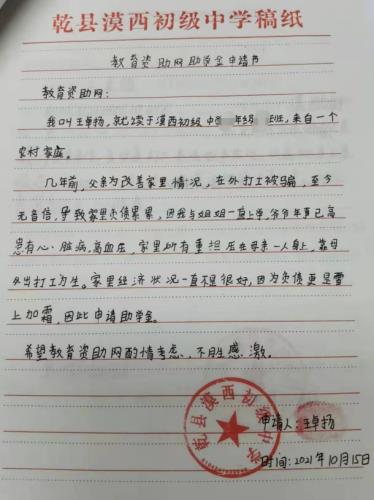 乾县漠西初级中学稿纸
教育资助网助学金申请书
教育资助网:
我叫王卓扬,就读于漠西初级中学 年级 班,来自一个
农村家庭。
几年前,父亲为改善家里情况,在外打工被骗,至今
无音信,导致家里负债累累,因我与姐姐一直上学,爷爷年事已高
患有心脏病,高血压,家里所有重担压在母亲一人身上,靠母
外出打工为生。家里经济状况一直不是很好,因为负债更是雪
上加霜,因此申请助学金。
希望教育资助网酌情考虑,不胜感激。
乾县漠西初级中学
申请人:王卓扬
时间:2021年10月15日